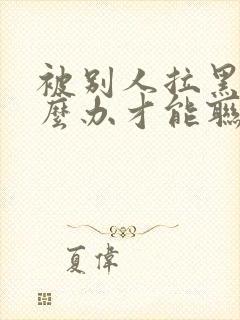 被别人拉黑
麼办才能联
夏偉